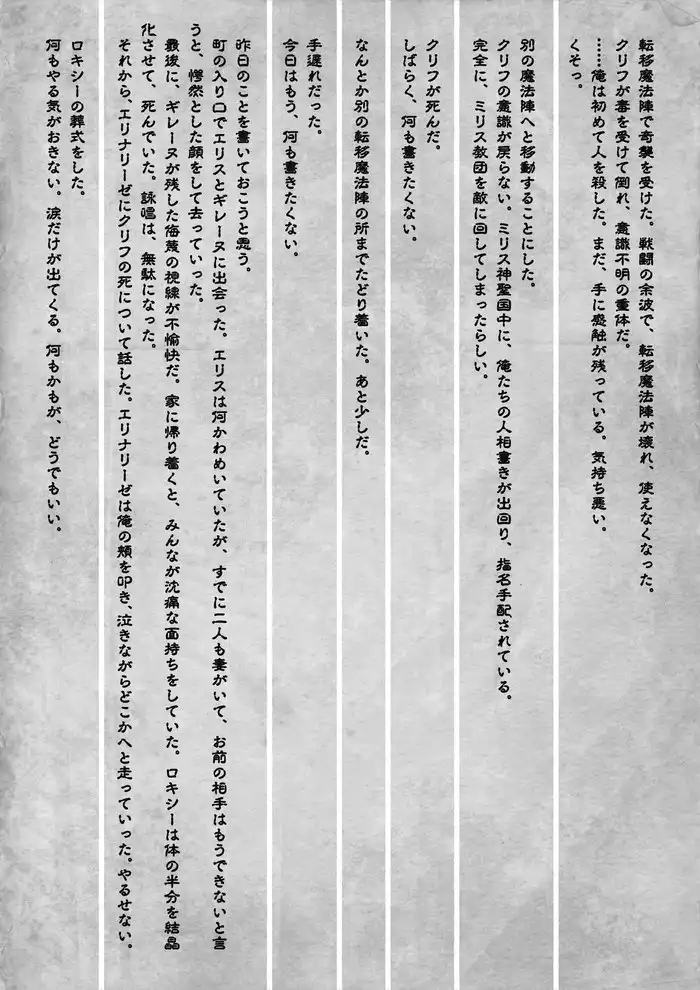 転移魔法陣で奇襲を受けた。戦闘の余波で、転移魔法陣が壊れ、使えなくなった。
クリフが毒を受けて倒れ、意識不明の重体だ。
……俺は初めて人を殺した。まだ、手に感触が残っている。気持ち悪い。
くそっ。
別の魔法陣へと移動することにした。
クリフの意識が戻らない。ミリス神聖国中に、俺たちの人相書きが出回り、指名手配されている。
完全に、ミリス教団を敵に回してしまったらしい。
クリフが死んだ。
しばらく、何も書きたくない。
なんとか別の転移魔法陣の所までたどり着いた。あと少しだ。
手遅れだった。
今日はもう、何も書きたくない。
昨日のことを書いておこうと思う。
町の入り口でエリスとギレーヌに出会った。エリスは何かわめいていたが、すでに二人も妻がいて、お前の相手はもうできないと言
うと、愕然とした顔をして去っていった。
最後に、ギレーヌが残した侮蔑の視線が不愉快だ。家に帰り着くと、みんなが沈痛な面持ちをしていた。ロキシーは体の半分を結晶
化させて、死んでいた。詠唱は、無駄になった。
それから、エリナリーゼにクリフの死について話した。エリナリーゼは俺の頬を叩き、泣きながらどこかへと走っていった。やるせない。
ロキシーの葬式をした。
何もやる気がおきない。涙だけが出てくる。何もかもが、どうでもいい。